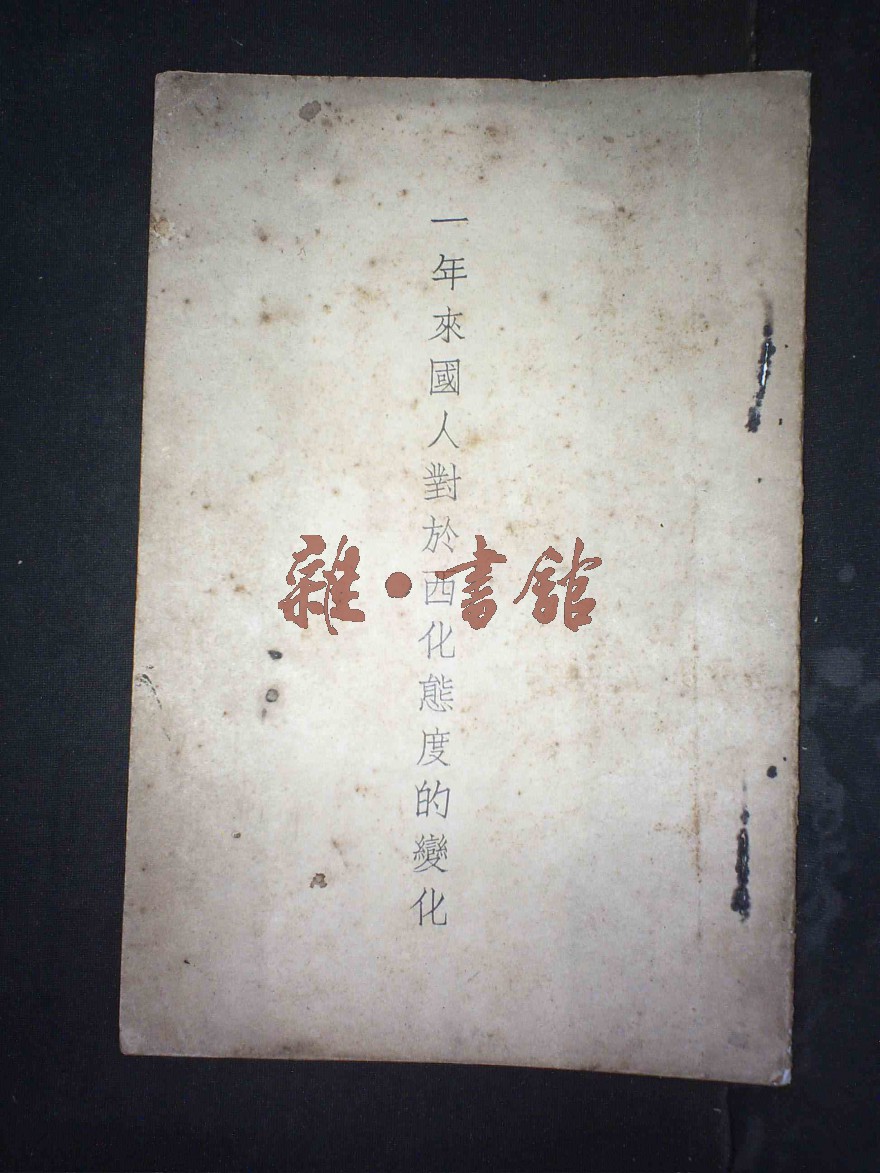 一年來國人對於西化態度的變化
雜·書館